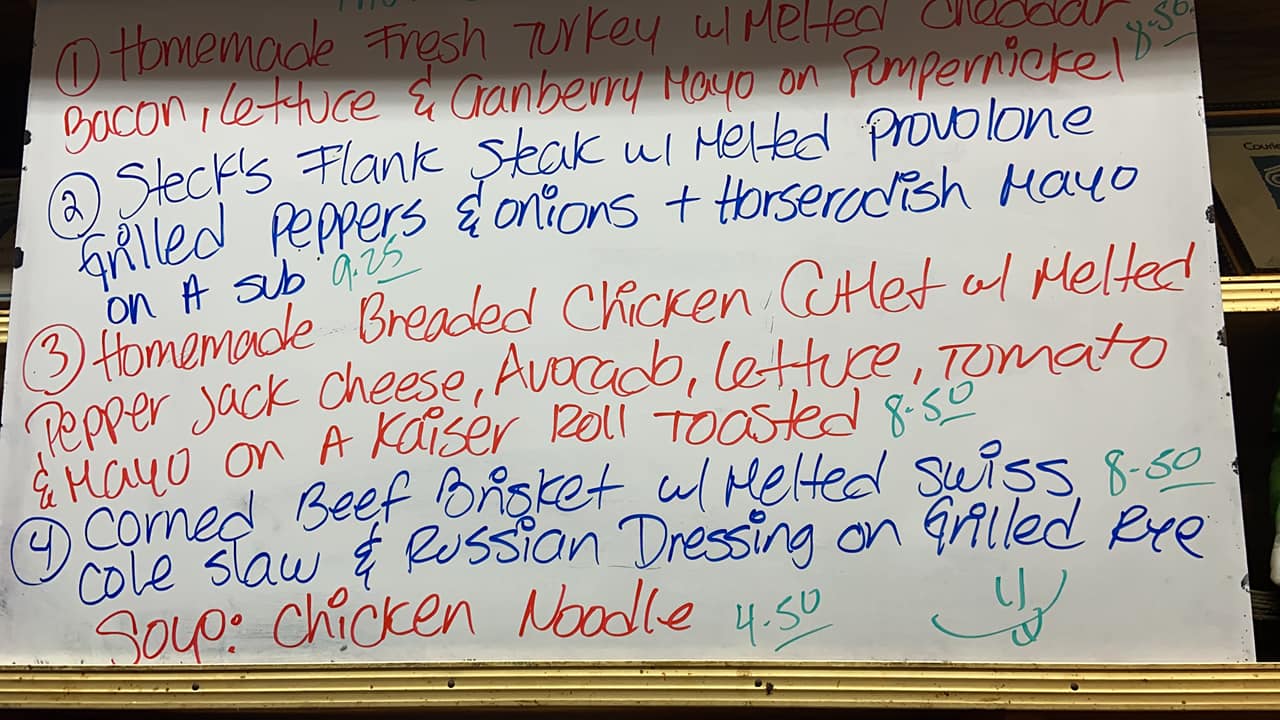 ① Homemade Fresh Turkey w/ Melted Cheddar 8-50
Bacon, Lettuce & Cranberry Mayo on Pumpernickel
② Steck's Flank Steak w/ Melted Provolone
Grilled Peppers & Onions + Horseradish Mayo
on A sub 9.25
③ Homemade Breaded Chicken Cutlet w/ Melted
Pepper Jack Cheese, Avocado, Lettuce, Tomato
& Mayo on A Kaiser Roll Toasted 8-50
④ Corned Beef Brisket w/ Melted Swiss 8-50
Cole Slaw & Russian Dressing on Grilled Rye
Soup: Chicken Noodle 4.50